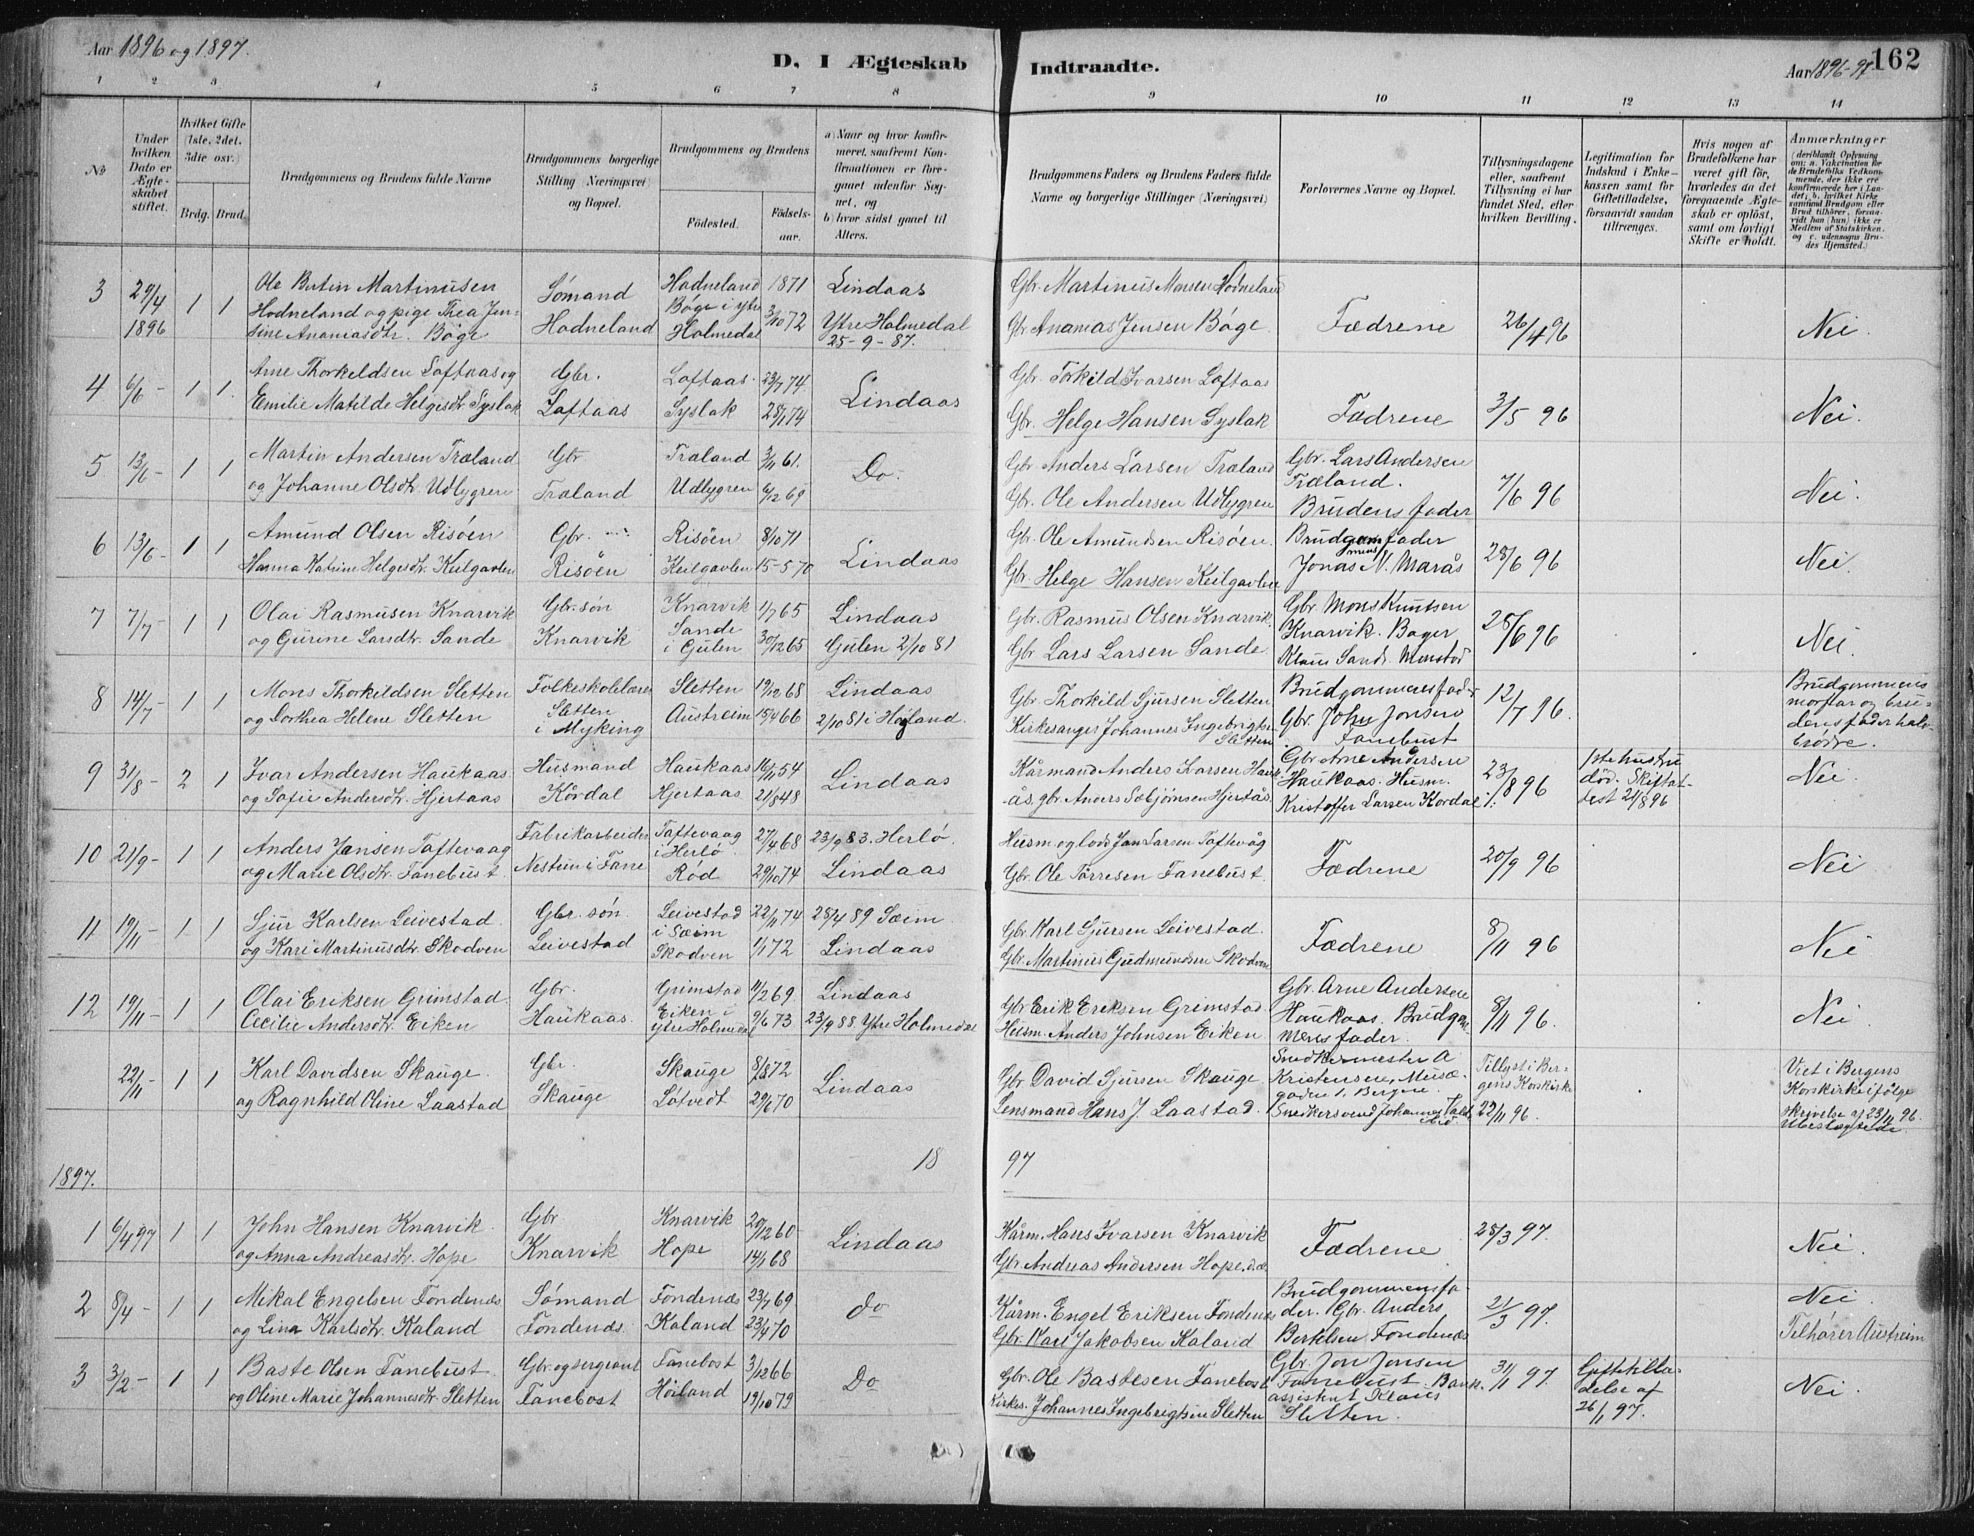 Aar 1896 og 1897.
D. I Ægteskab
Indtraadte.
Aar 1896-97
162
1 2 3 4 5 6 7 8 9 10 11 12 13 14
No
Under hvilken Dato er Ægteskabet stiftet.
Hvilket Gifte (1ste, 2det, 3die osv.)
Brdg. Brud.
Brudgommens og Brudens fulde Navne
Brudgommens borgerlige Stilling (Næringsvei) og Bopæl.
Brudgommens og Brudens
Fødested.
Fødselsaar.
a) Naar og hvor konfirmeret, saafremt Konfirmationen er foregaaet udenfor Sognet, og
b) hvor sidst gaaet til Alters.
Brudgommens Faders og Brudens Faders fulde Navne og borgerlige Stillinger (Næringsvei)
Forlovernes Navne og Bopæl.
Tillysningsdagene eller, saafremt Tillysning ei har fundet Sted, efter hvilken Bevilling.
Legitimation for Indskud i Enkekassen samt for Giftetilladelse, forsaavidt saadan tiltrænges.
Hvis nogen af Brudefolkene har været gift før, hvorledes da det foregaaende Ægteskab er opløst, samt om lovligt Skifte er holdt.
Anmærkninger
(deriblandt Oplysning om: a. Vakcination for de Brudefolks Vedkommende, der ikke ere konfirmerede her i Landet; b. hvilket Kirkesamfund Brudgom eller Brud tilhører, forsaavidt han (hun) ikke er Medlem af Statskirken, og c. udensogns Brudes Hjemsted.)
3 29/4 1896 1 1 Ole Butin Martinusen Hodneland og pige Thea Jensine Ananiasdtr. Bøge Sømand Hodneland Hodneland 1871 Bøge i Ytre Holmedal 3/10 72 Lindaas Ytre Holmedal 25-9-87. Gbr. Martinus Monsen Hodneland Gbr Ananias Jensen Bøge. Fædrene 26/4 96 Nei.
4 6/6 - 1 1. Arne Thorkildsen Loftaas og Emilie Matilde Helgesdtr Syslak Gbr. Loftaas Loftaas. 23/7 74 Syslak 28/1 74 Lindaas Gbr. Torkild Ivarsen Loftaas Gbr. Helge Hansen Syslak Fædrene 3/5 96 Nei.
5 13/6 - 1 1 Martin Andersen Træland og Johanne Olsdtr. Udlygren Gbr Træland Træland 3/11 61. Udlygren 6/12 69 Do. Gbr. Anders Larsen Træland Gbr. Ole Andersen Udlygren Gbr. Lars Andersen Træland. Brudens fader 7/6 96 Nei.
6 13/6 - 1 1 Amund Olsen Risöen Hanna Katrine Helgesdtr. Keilgavlen Gbr. Risöen Risöen 8/10 71 Keilgavlen 15-5-70 Lindaas Gbr. Ole Amundsen Risöen. Gbr. Helge Hansen Keilgavlen Brudgommens fader Jonas N. Marås 28/6 96 Nei.
7 7/7 - 1 1 Olai Rasmusen Knarvik og Gurine Larsdtr. Sande Gbr. søn Knarvik Knarvik 1/7 65 Sande i Gulen 30/12 65 Lindaas Gulen 2/10 81 Gbr. Rasmus Olsen Knarvik. Gbr Lars Larsen Sande Gbr. Mons Knutsen Knarvik. Bager Klaus Sande Monstad 28/6 96 Nei.
8 14/7 - 1 1 Mons Thorkildsen Sletten og Dorthea Helene Sletten Folkeskolelærer Sletten i Myking Sletten 19/12 68 Austreim 15/4 66 Lindaas 2/10 81 i Høiland. Gbr. Thorkild Sjursen Sletten Kirkesanger Johannes Ingebrigtsen Sletten Brudgommens fader Gbr. John Jonsen Fanebust 12/7 96. Brudgommens morfar og brudens fader halvbrødre.
9 31/8 - 2 1 Ivar Andersen Haukaas og Sofie Andersdtr. Hjertaas Husmand Kørdal Haukaas 16/11 54 Hjertaas 21/8 48 Lindaas Kårmand Anders Larsen Haukås, gbr. Anders Sebjørnsen Hjertås. Gbr Arne Andersen Haukaas. Husm. Kristoffer Larsen Kordal. 23/8 96 1ste hustru død. Skifteattest 21/8 96 Nei
10 21/9 - 1 1 Anders Jansen Toftevaag og Marie Olsdtr. Fanebust Fabrikarbeider Nestun i Fane Toftevaag i Herlø. 27/4 68 Rod 29/10 74 23/9 83. Herlö. Lindaas Husm. og lods Jan Larsen Toftevåg Gbr. Ole Torresen Fanebust. Fædrene 20/9 96 Nei
11 19/11 - 1 1 Sjur Karlsen Leivestad. og Kari Martinusdtr. Skodven Gbr. søn. Leivestad Leivestad i Sæim 22/11 74 Skodven 1/1 72 28/4 89 Sæim Lindaas Gbr. Karl Sjursen Leivestad. Gbr. Martinus Gudmundsen Skodven Fædrene 8/11 96 Nei
12 19/11 - 1 1 Olai Eriksen Grimstad. Cecilie Andersdtr. Eiken Gbr. Haukaas. Grimstad 11/2 69 Eiken i Ytre Holmedal 9/6 73 Lindaas 23/9 88 Ytre Holmedal Gbr Erik Eriksen Grimstad. Husm. Anders Johnsen Eiken Gbr. Arne Andersen Haukaas. Brudgommens fader. 8/11 96. Nei
22/11 - 1 1 Karl Davidsen Skauge. og Ragnhild Oline Laastad Gbr. Skauge Skauge 8/8 72 Løtvedt 29/6 70 Lindaas Gbr David Sjursen Skauge Lensmand Hans J. Laastad. Snedkermester A Kristensen, Snedkersvend Johannes Tillyst i Bergens Korskirke 22/11 96. Viet i Bergens Korskirke ifølge skrivelse af 23/11 96. Ubeslægtede.
1897. 18 97
1 6/4 97 1 1 John Hansen Knarvik. og Anna Andreasdtr. Hope Gbr Knarvik Knarvik 20/12 60 Hope 14/1 68 Lindaas Kårm. Hans Ivarsen Knarvik Gbr. Andreas Andersen Hope. Fædrene 28/3 97. Nei.
2 8/4 - 1 1 Mikal Engelsen Fondenæs og Lina Karlsdtr. Kaland Sømand Fondenæs. Fondenæs 23/7 69 Kaland 23/4 70 do Kårm. Engel Eriksen Fondenæs Gbr. Karl Jakobsen Kaland Brudgommens fader. Gbr. Anders Bertelsen Fondenæs 21/3 97. Nei Tilhører Austreim
3 3/2 - 1 1 Baste Olsen Fanebust. og Oline Marie Johannesdtr. Sletten Gbr. og sergeant Fanebost Fanebost 3/12 66 Høiland 19/10 79 Do Gbr. Ole Bastesen Fanebost Kirkes. Johannes Ingebrigtsen Sletten Gbr. Jon Jonsen Fanebust. Bankassistent Klaus Sletten. 31/1 97. Giftetilladelse af 26/1 97. Nei.